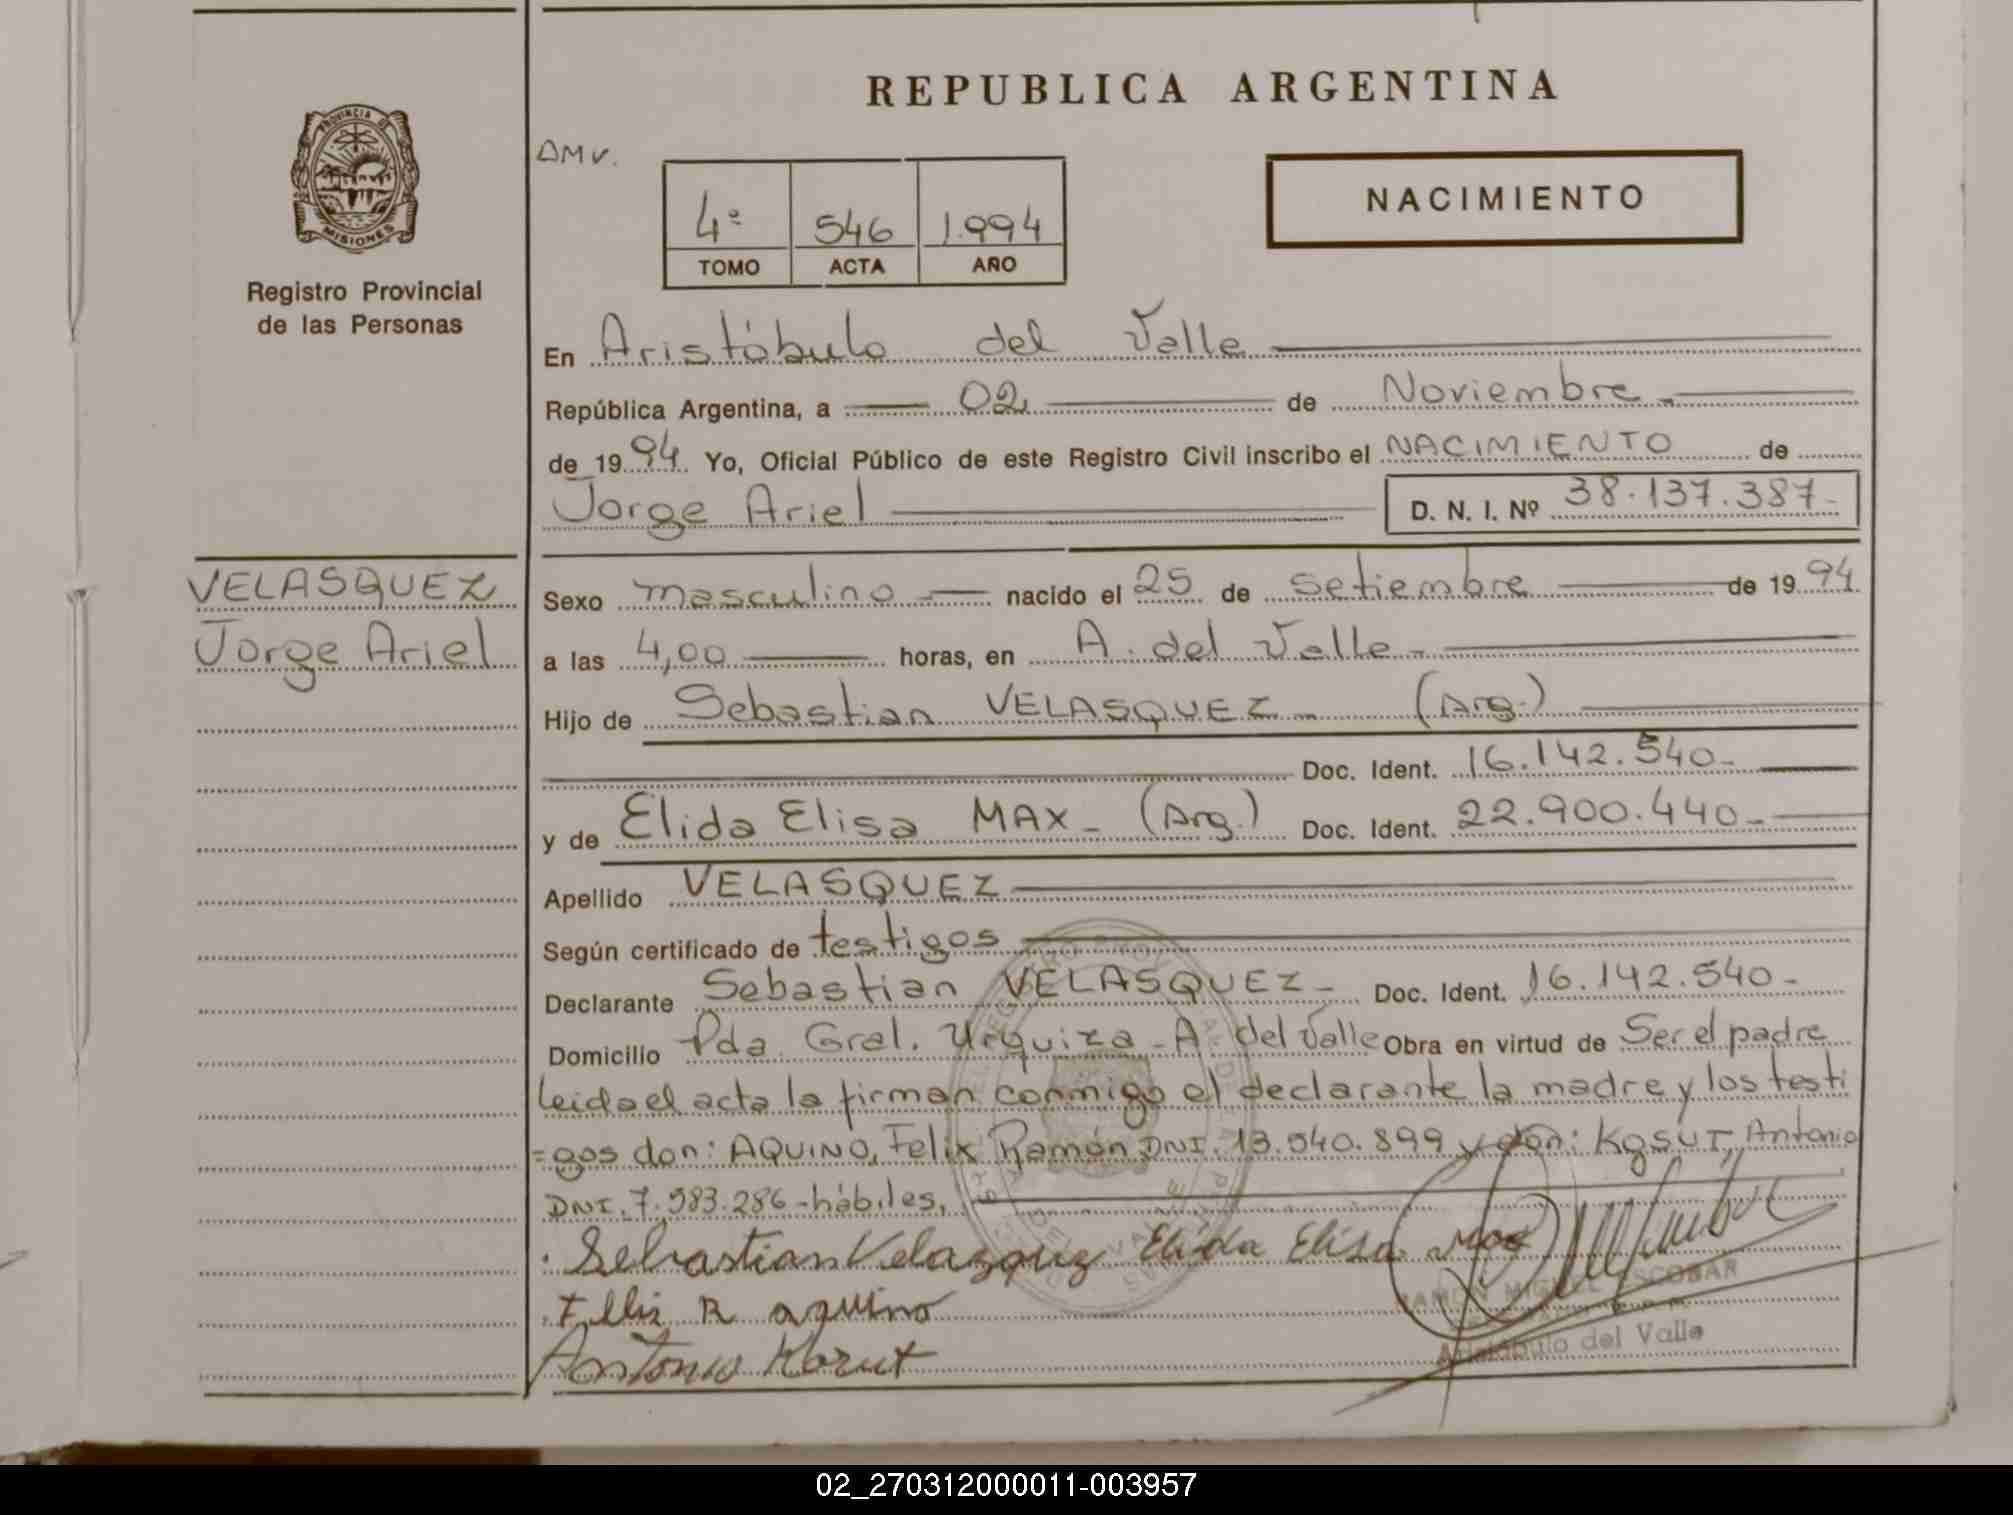 REPUBLICA ARGENTINA
PROVINCIA DE
MISIONES
Registro Provincial
de las Personas
AMV.
4º 546 1.994
TOMO ACTA AÑO
NACIMIENTO
En Aristóbulo del Valle
República Argentina, a 02 de Noviembre
de 1994 Yo, Oficial Público de este Registro Civil inscribo el NACIMIENTO de
Jorge Ariel D. N. I. Nº 38.137.387-
VELASQUEZ
Jorge Ariel
Sexo masculino nacido el 25 de setiembre de 1994
a las 4,00 horas, en A. del Valle-
Hijo de Sebastian VELASQUEZ (Arg.)
Doc. Ident. 16.142.540-
y de Elida Elisa MAX- (Arg.) Doc. Ident. 22.900.440-
Apellido VELASQUEZ
Según certificado de testigos
Declarante Sebastian VELASQUEZ- Doc. Ident. 16.142.540-
Domicilio Pda. Gral. Urquiza - A. del Valle Obra en virtud de Ser el padre
leida el acta la firman conmigo el declarante la madre y los testi
=gos don: AQUINO, Felix Ramón DNI. 13.540.899 y don: KOSUT, Antonio
DNI. 7.583.286-hábiles,
Sebastian Velazquez Elida Elisa Max
R aquino
Antonio
RAMON MIGUEL ESCOBAR
Aristóbulo del Valle
02_270312000011-003957